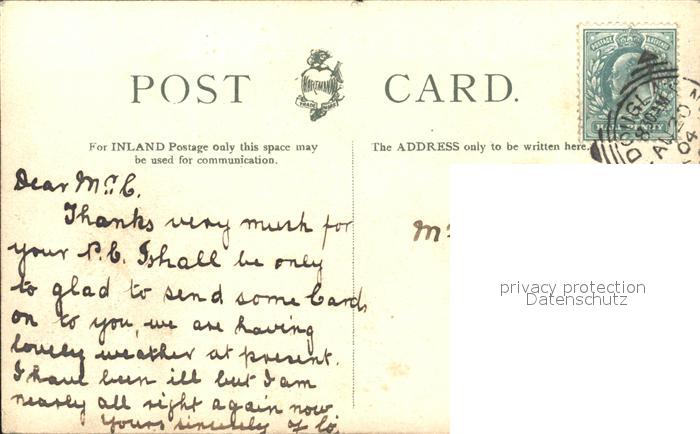 POST CARD.
HARTMANN
TRADE MARK
POSTAGE & REVENUE
HALFPENNY
DOUGL
AU 20
04
For INLAND Postage only this space may
be used for communication.
The ADDRESS only to be written here.
Dear Mrs C.
Thanks very much for
your P.C. I shall be only
to glad to send some Cards
on to you, we are having
lovely weather at present.
I have been ill but I am
nearly all right again now
Yours sincerely
privacy protection
Datenschutz